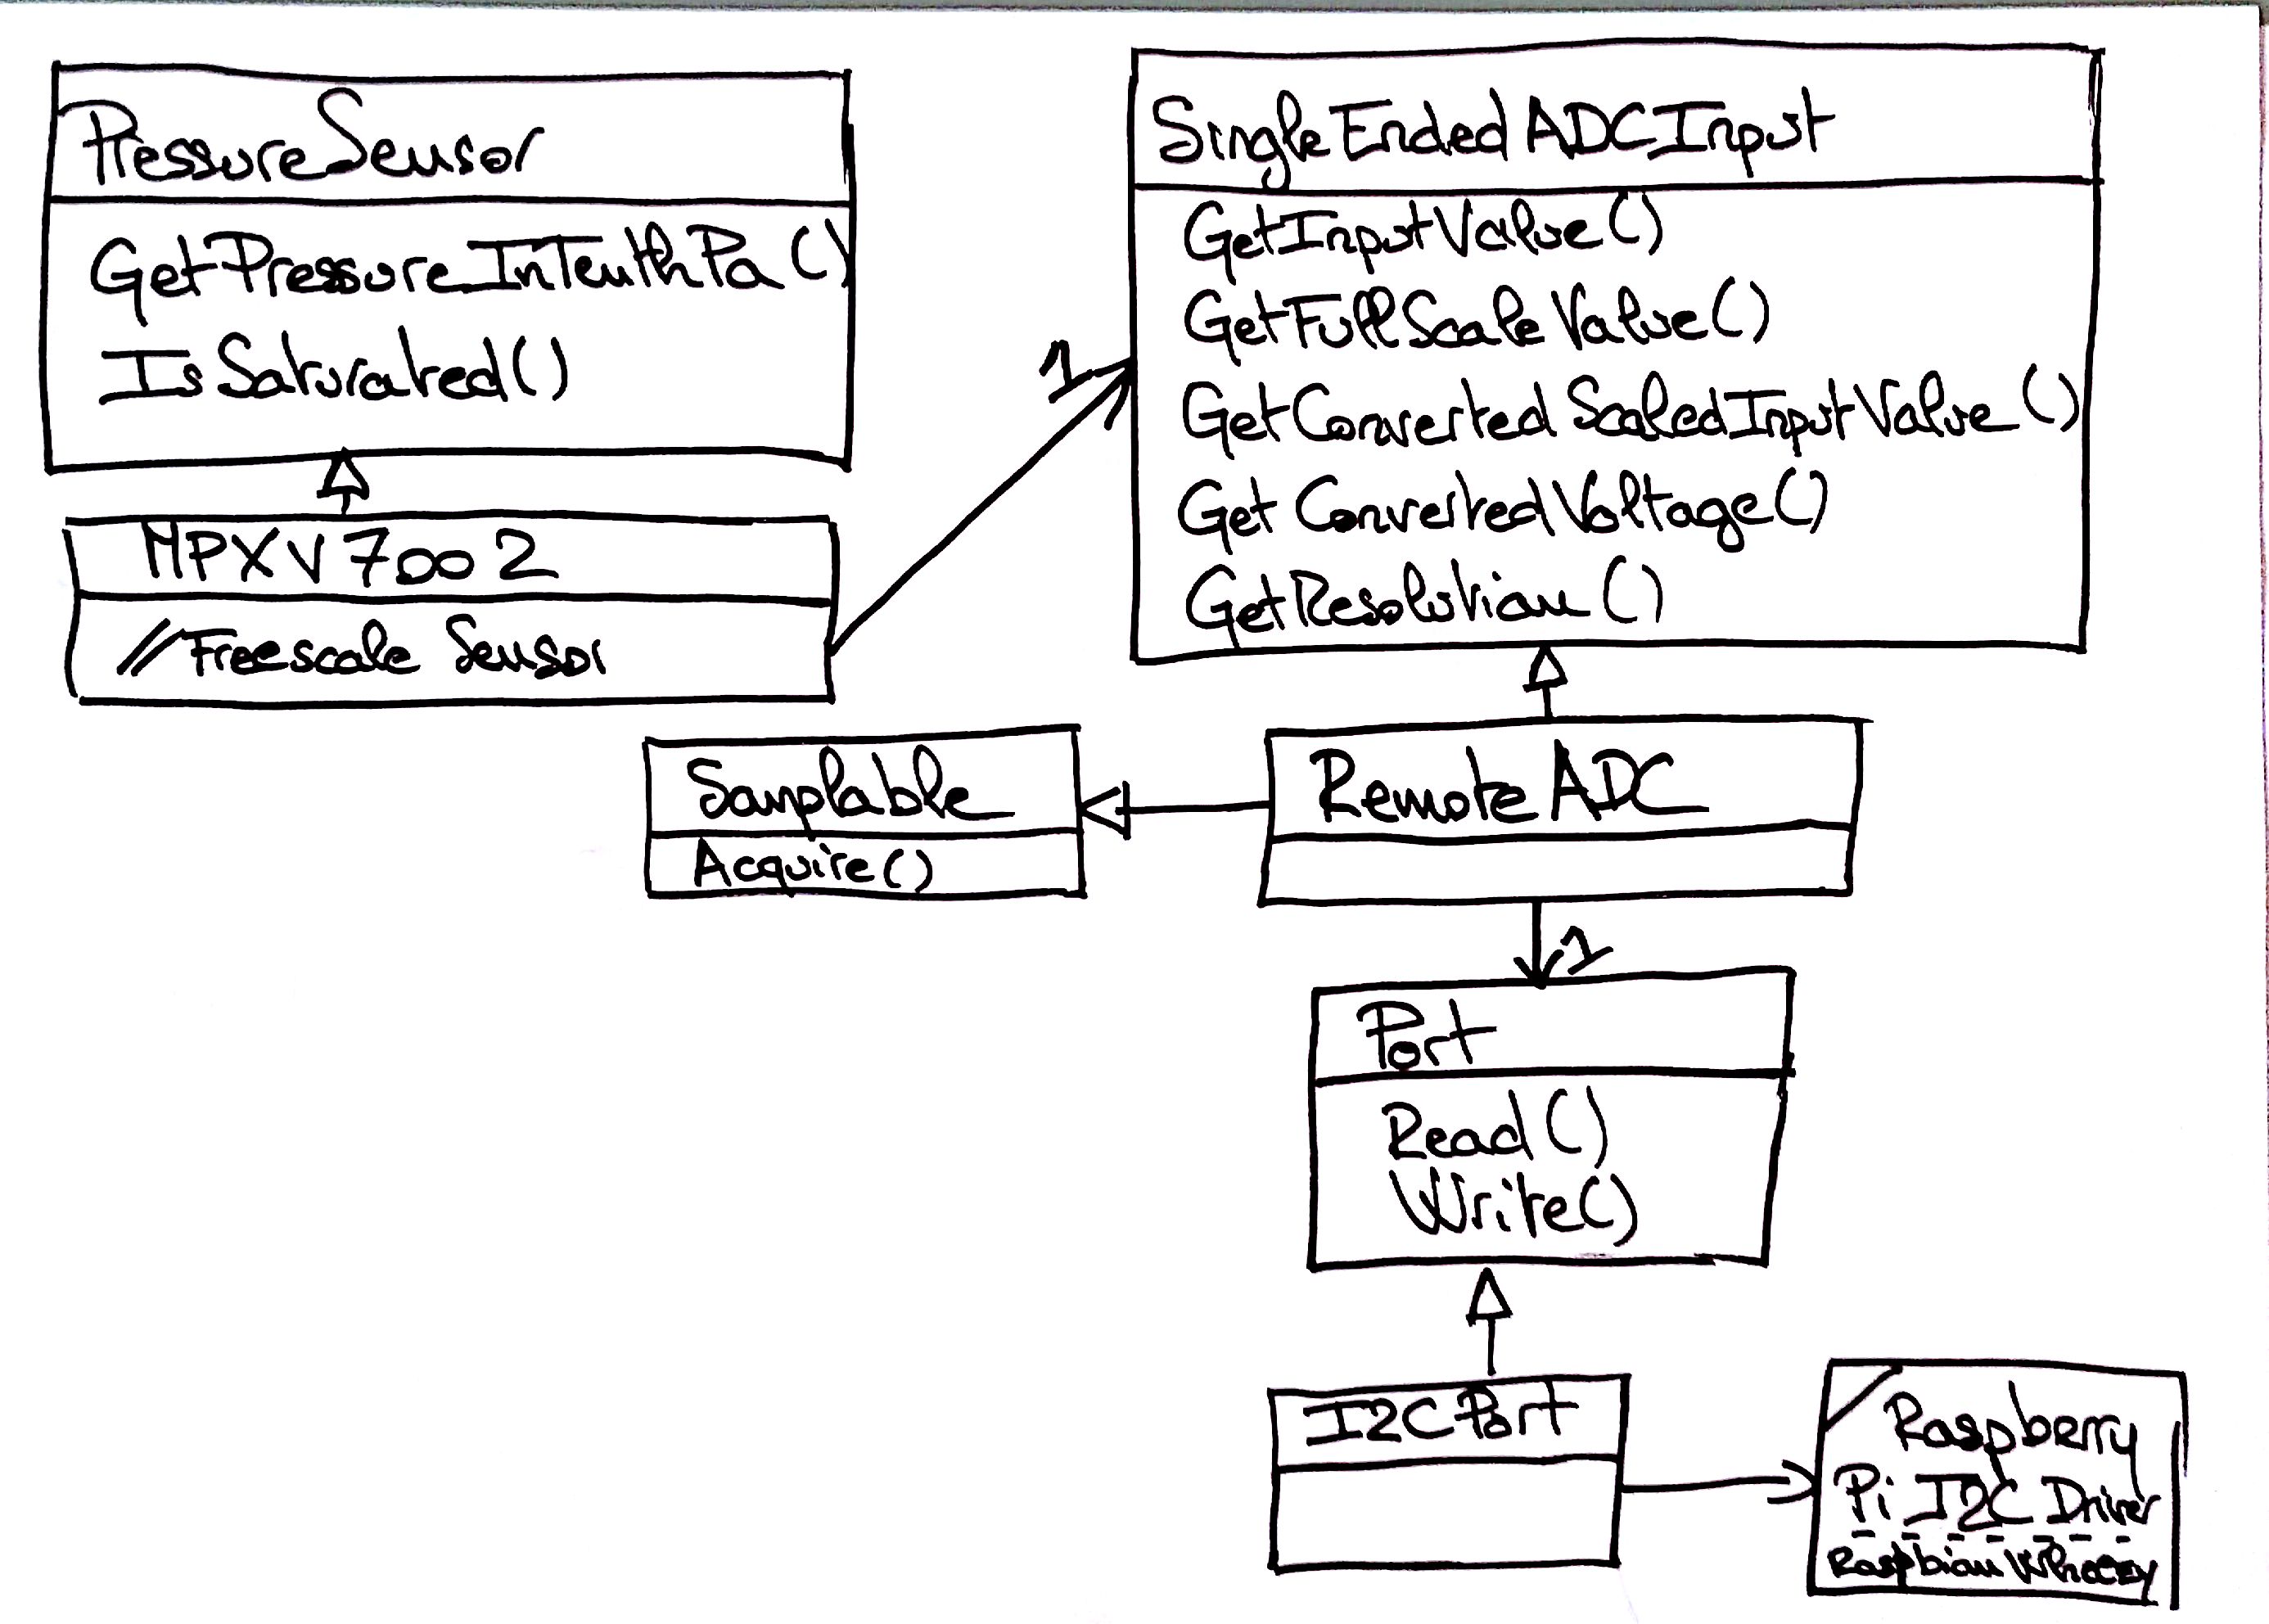 PressureSensor
GetPressureInTenthPa()
IsSaturated()
MPXV7002
//Freescale Sensor
1
SingleEndedADCInput
GetInputValue()
GetFullScaleValue()
GetConvertedScaledInputValue()
GetConvertedVoltage()
GetResolution()
Samplable
Acquire()
RemoteADC
1
Port
Read()
Write()
I2CPort
Raspberry
Pi I2C Driver
Raspbian Wheezy